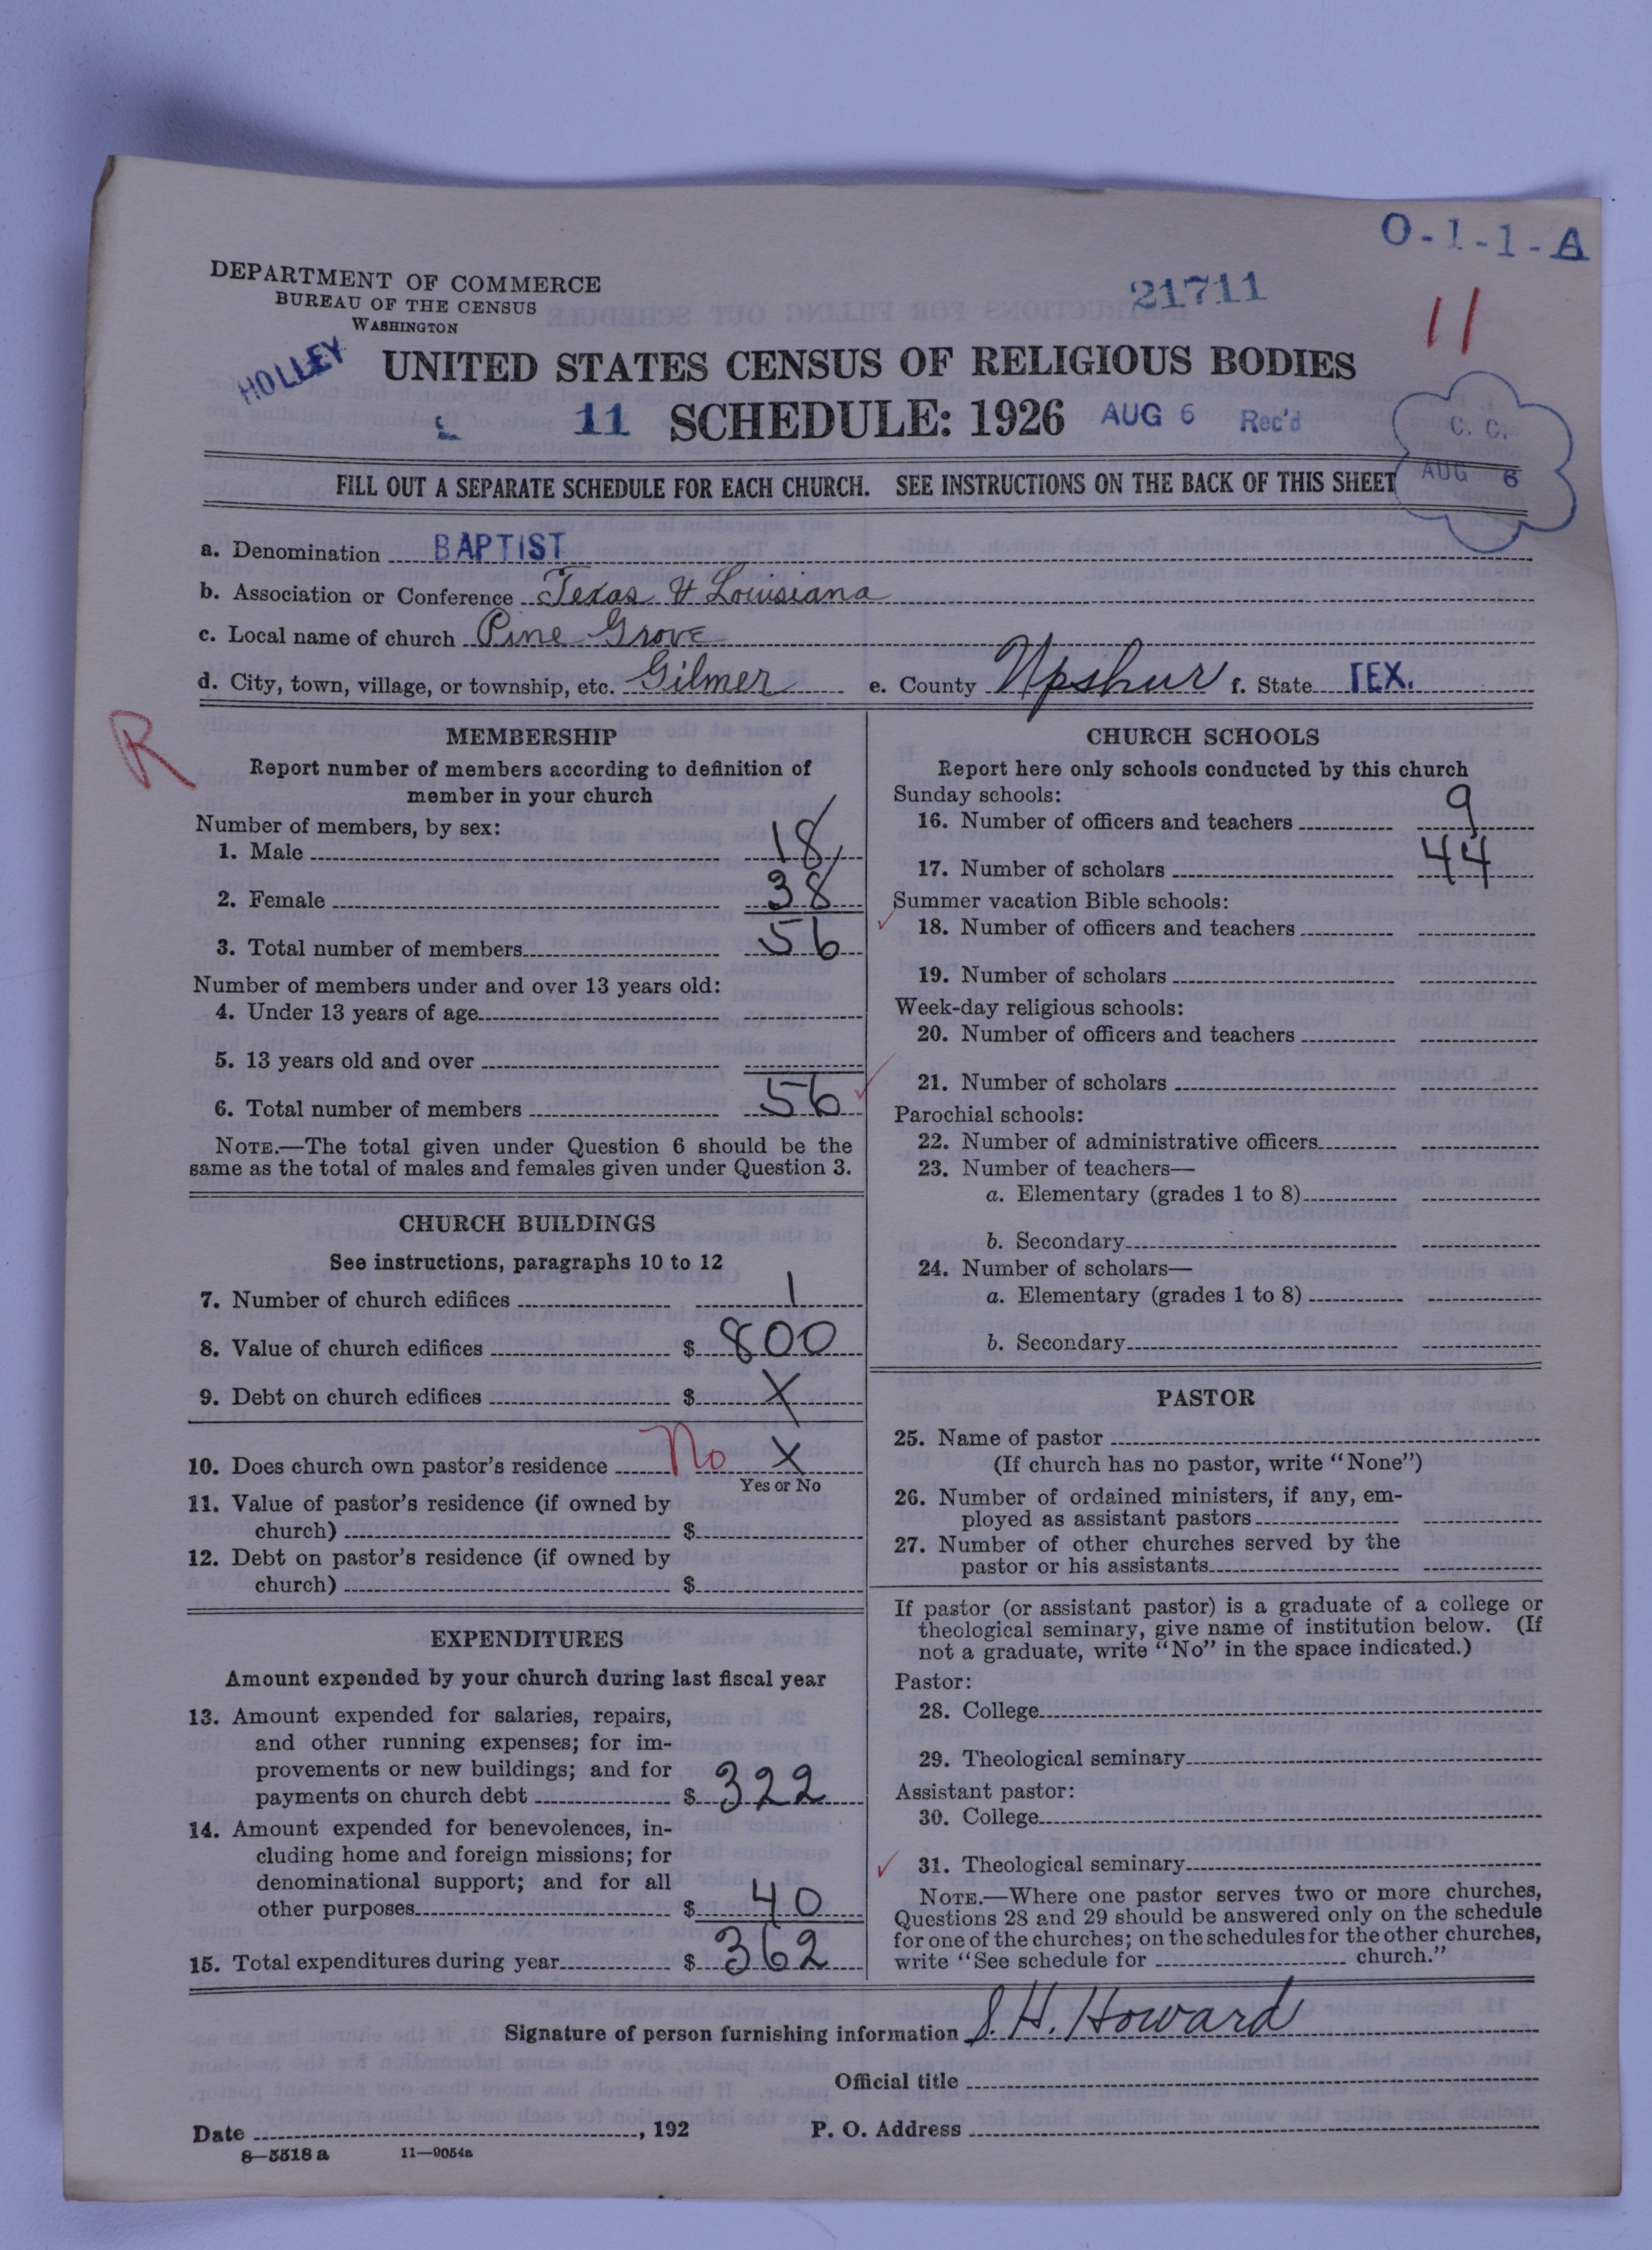 O-1-1-A
DEPARTMENT OF COMMERCE
BUREAU OF THE CENSUS
WASHINGTON
21711
11
HOLLEY
UNITED STATES CENSUS OF RELIGIOUS BODIES
11 SCHEDULE: 1926 AUG 6 Rec'd
C. C.
AUG 6
FILL OUT A SEPARATE SCHEDULE FOR EACH CHURCH. SEE INSTRUCTIONS ON THE BACK OF THIS SHEET
a. Denomination BAPTIST
b. Association or Conference Texas & Louisiana
c. Local name of church Pine Grove
d. City, town, village, or township, etc. Gilmer e. County Upshur f. State TEX.
R
MEMBERSHIP
Report number of members according to definition of
member in your church
Number of members, by sex:
1. Male 18
2. Female 38
3. Total number of members 56
Number of members under and over 13 years old:
4. Under 13 years of age
5. 13 years old and over
6. Total number of members 56
NOTE.—The total given under Question 6 should be the
same as the total of males and females given under Question 3.
CHURCH BUILDINGS
See instructions, paragraphs 10 to 12
7. Number of church edifices 1
8. Value of church edifices $ 800
9. Debt on church edifices $ X
10. Does church own pastor's residence No X
Yes or No
11. Value of pastor's residence (if owned by
church) $
12. Debt on pastor's residence (if owned by
church) $
EXPENDITURES
Amount expended by your church during last fiscal year
13. Amount expended for salaries, repairs,
and other running expenses; for im-
provements or new buildings; and for
payments on church debt $ 322
14. Amount expended for benevolences, in-
cluding home and foreign missions; for
denominational support; and for all
other purposes $ 40
15. Total expenditures during year $ 362
CHURCH SCHOOLS
Report here only schools conducted by this church
Sunday schools:
16. Number of officers and teachers 9
17. Number of scholars 44
Summer vacation Bible schools:
18. Number of officers and teachers
19. Number of scholars
Week-day religious schools:
20. Number of officers and teachers
21. Number of scholars
Parochial schools:
22. Number of administrative officers
23. Number of teachers—
a. Elementary (grades 1 to 8)
b. Secondary
24. Number of scholars—
a. Elementary (grades 1 to 8)
b. Secondary
PASTOR
25. Name of pastor
(If church has no pastor, write "None")
26. Number of ordained ministers, if any, em-
ployed as assistant pastors
27. Number of other churches served by the
pastor or his assistants
If pastor (or assistant pastor) is a graduate of a college or
theological seminary, give name of institution below. (If
not a graduate, write "No" in the space indicated.)
Pastor:
28. College
29. Theological seminary
Assistant pastor:
30. College
31. Theological seminary
NOTE.—Where one pastor serves two or more churches,
Questions 28 and 29 should be answered only on the schedule
for one of the churches; on the schedules for the other churches,
write "See schedule for church."
Signature of person furnishing information S. H. Howard
Official title
Date , 192 P. O. Address
8—5518 a 11—9054a